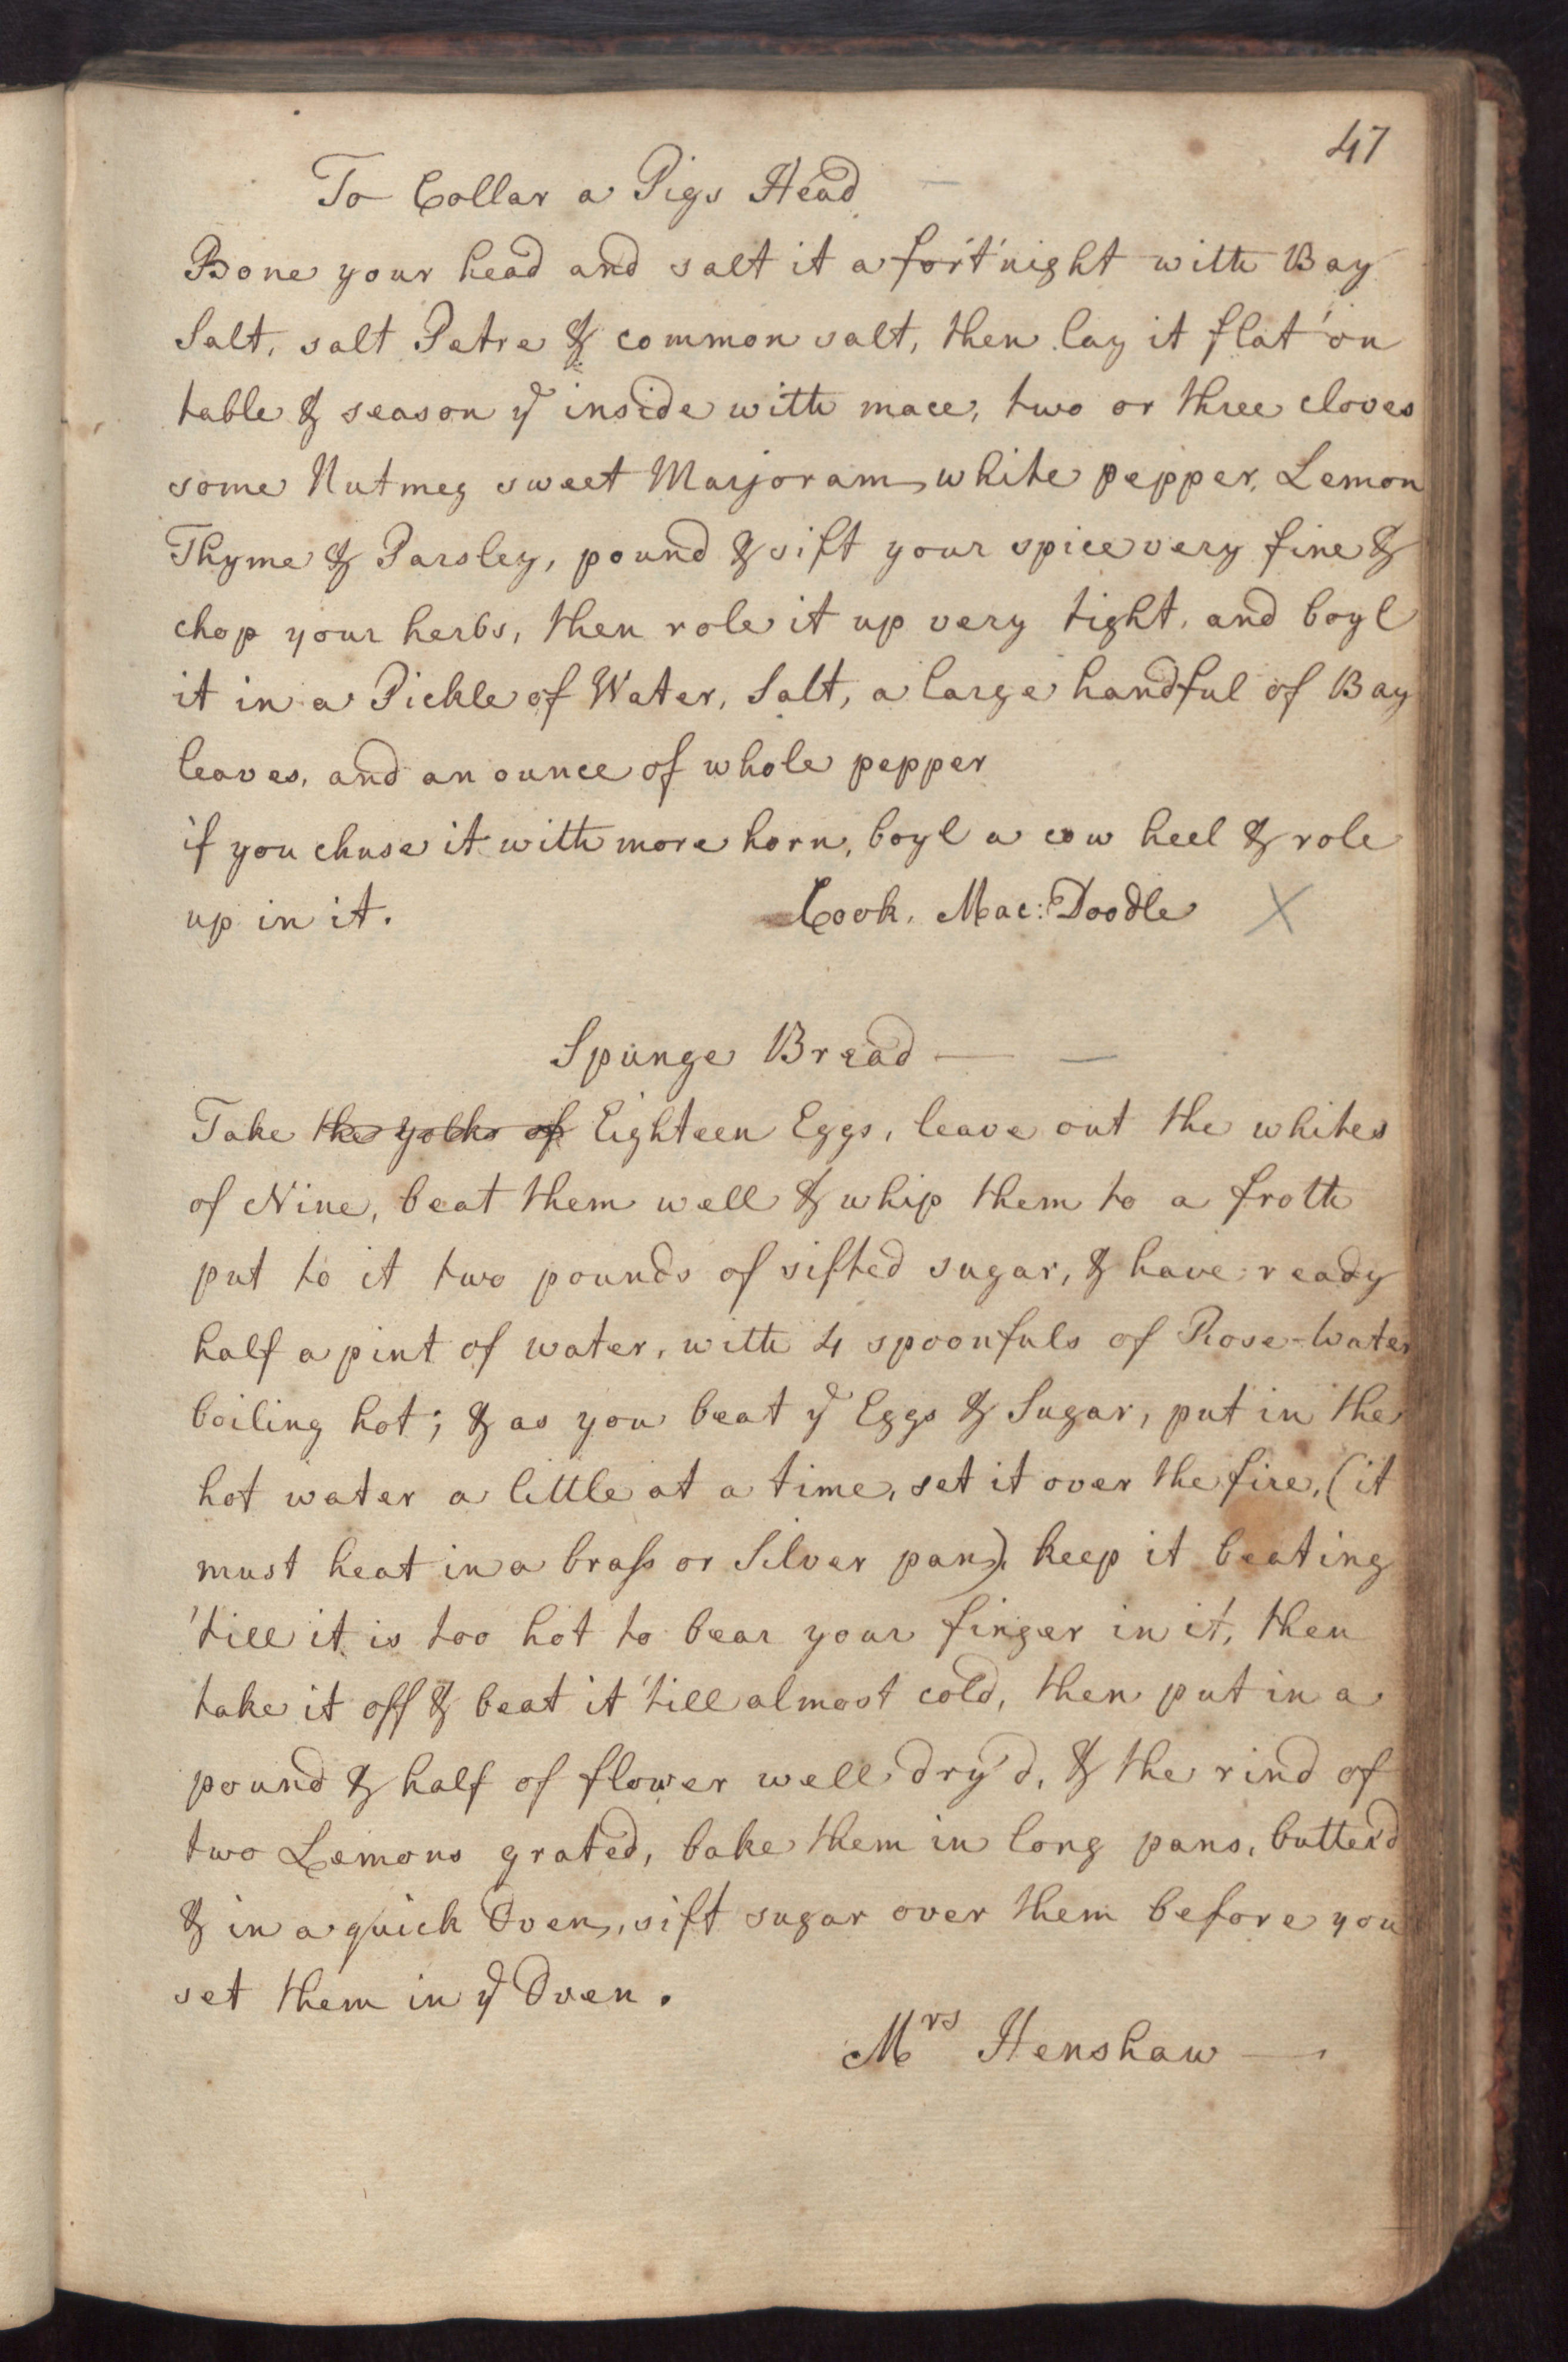 47
To Collar a Pigs Head
Bone your head and salt it a fort'night with Bay
Salt, salt Petre & common salt, then lay it flat on
table & season ye inside with mace, two or three cloves
some Nutmeg sweet Marjoram, white pepper, Lemon
Thyme & Parsley, pound & sift your spice very fine &
chop your herbs, then role it up very tight, and boyl
it in a Pickle of Water, Salt, a large handful of Bay
leaves, and an ounce of whole pepper
if you chuse it with more horn, boyl a cow heel & role
up in it. Cook, Mac: Doodle X
Spunge Bread —
Take the yolks of Eighteen Eggs, leave out the whites
of Nine, beat them well & whip them to a froth
put to it two pounds of sifted sugar, & have ready
half a pint of water, with 4 spoonfuls of Rose-water
boiling hot; & as you beat ye Eggs & Sugar, put in the
hot water a little at a time, set it over the fire, (it
must heat in a brass or Silver pan), keep it beating
'till it is too hot to bear your finger in it, then
take it off & beat it 'till almost cold, then put in a
pound & half of flower well dry'd, & the rind of
two Lemons grated, bake them in long pans, butter'd
& in a quick Oven, sift sugar over them before you
set them in ye Oven.
Mrs Henshaw —